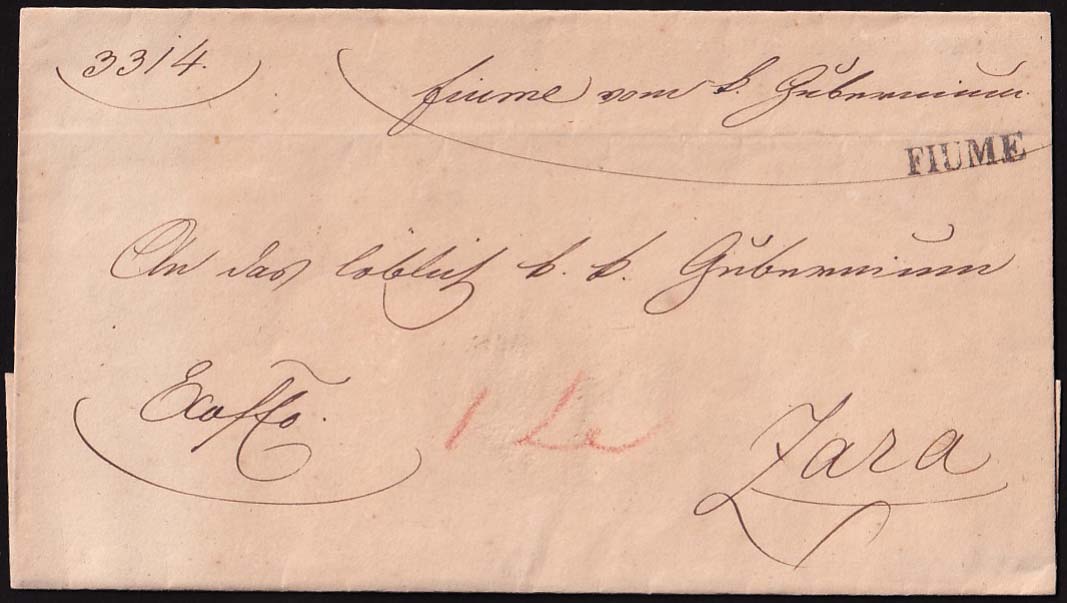 3314.
Fiume vom k. Gubernium.
FIUME
An das löblich k. k. Gubernium
Exoffo.
Zara